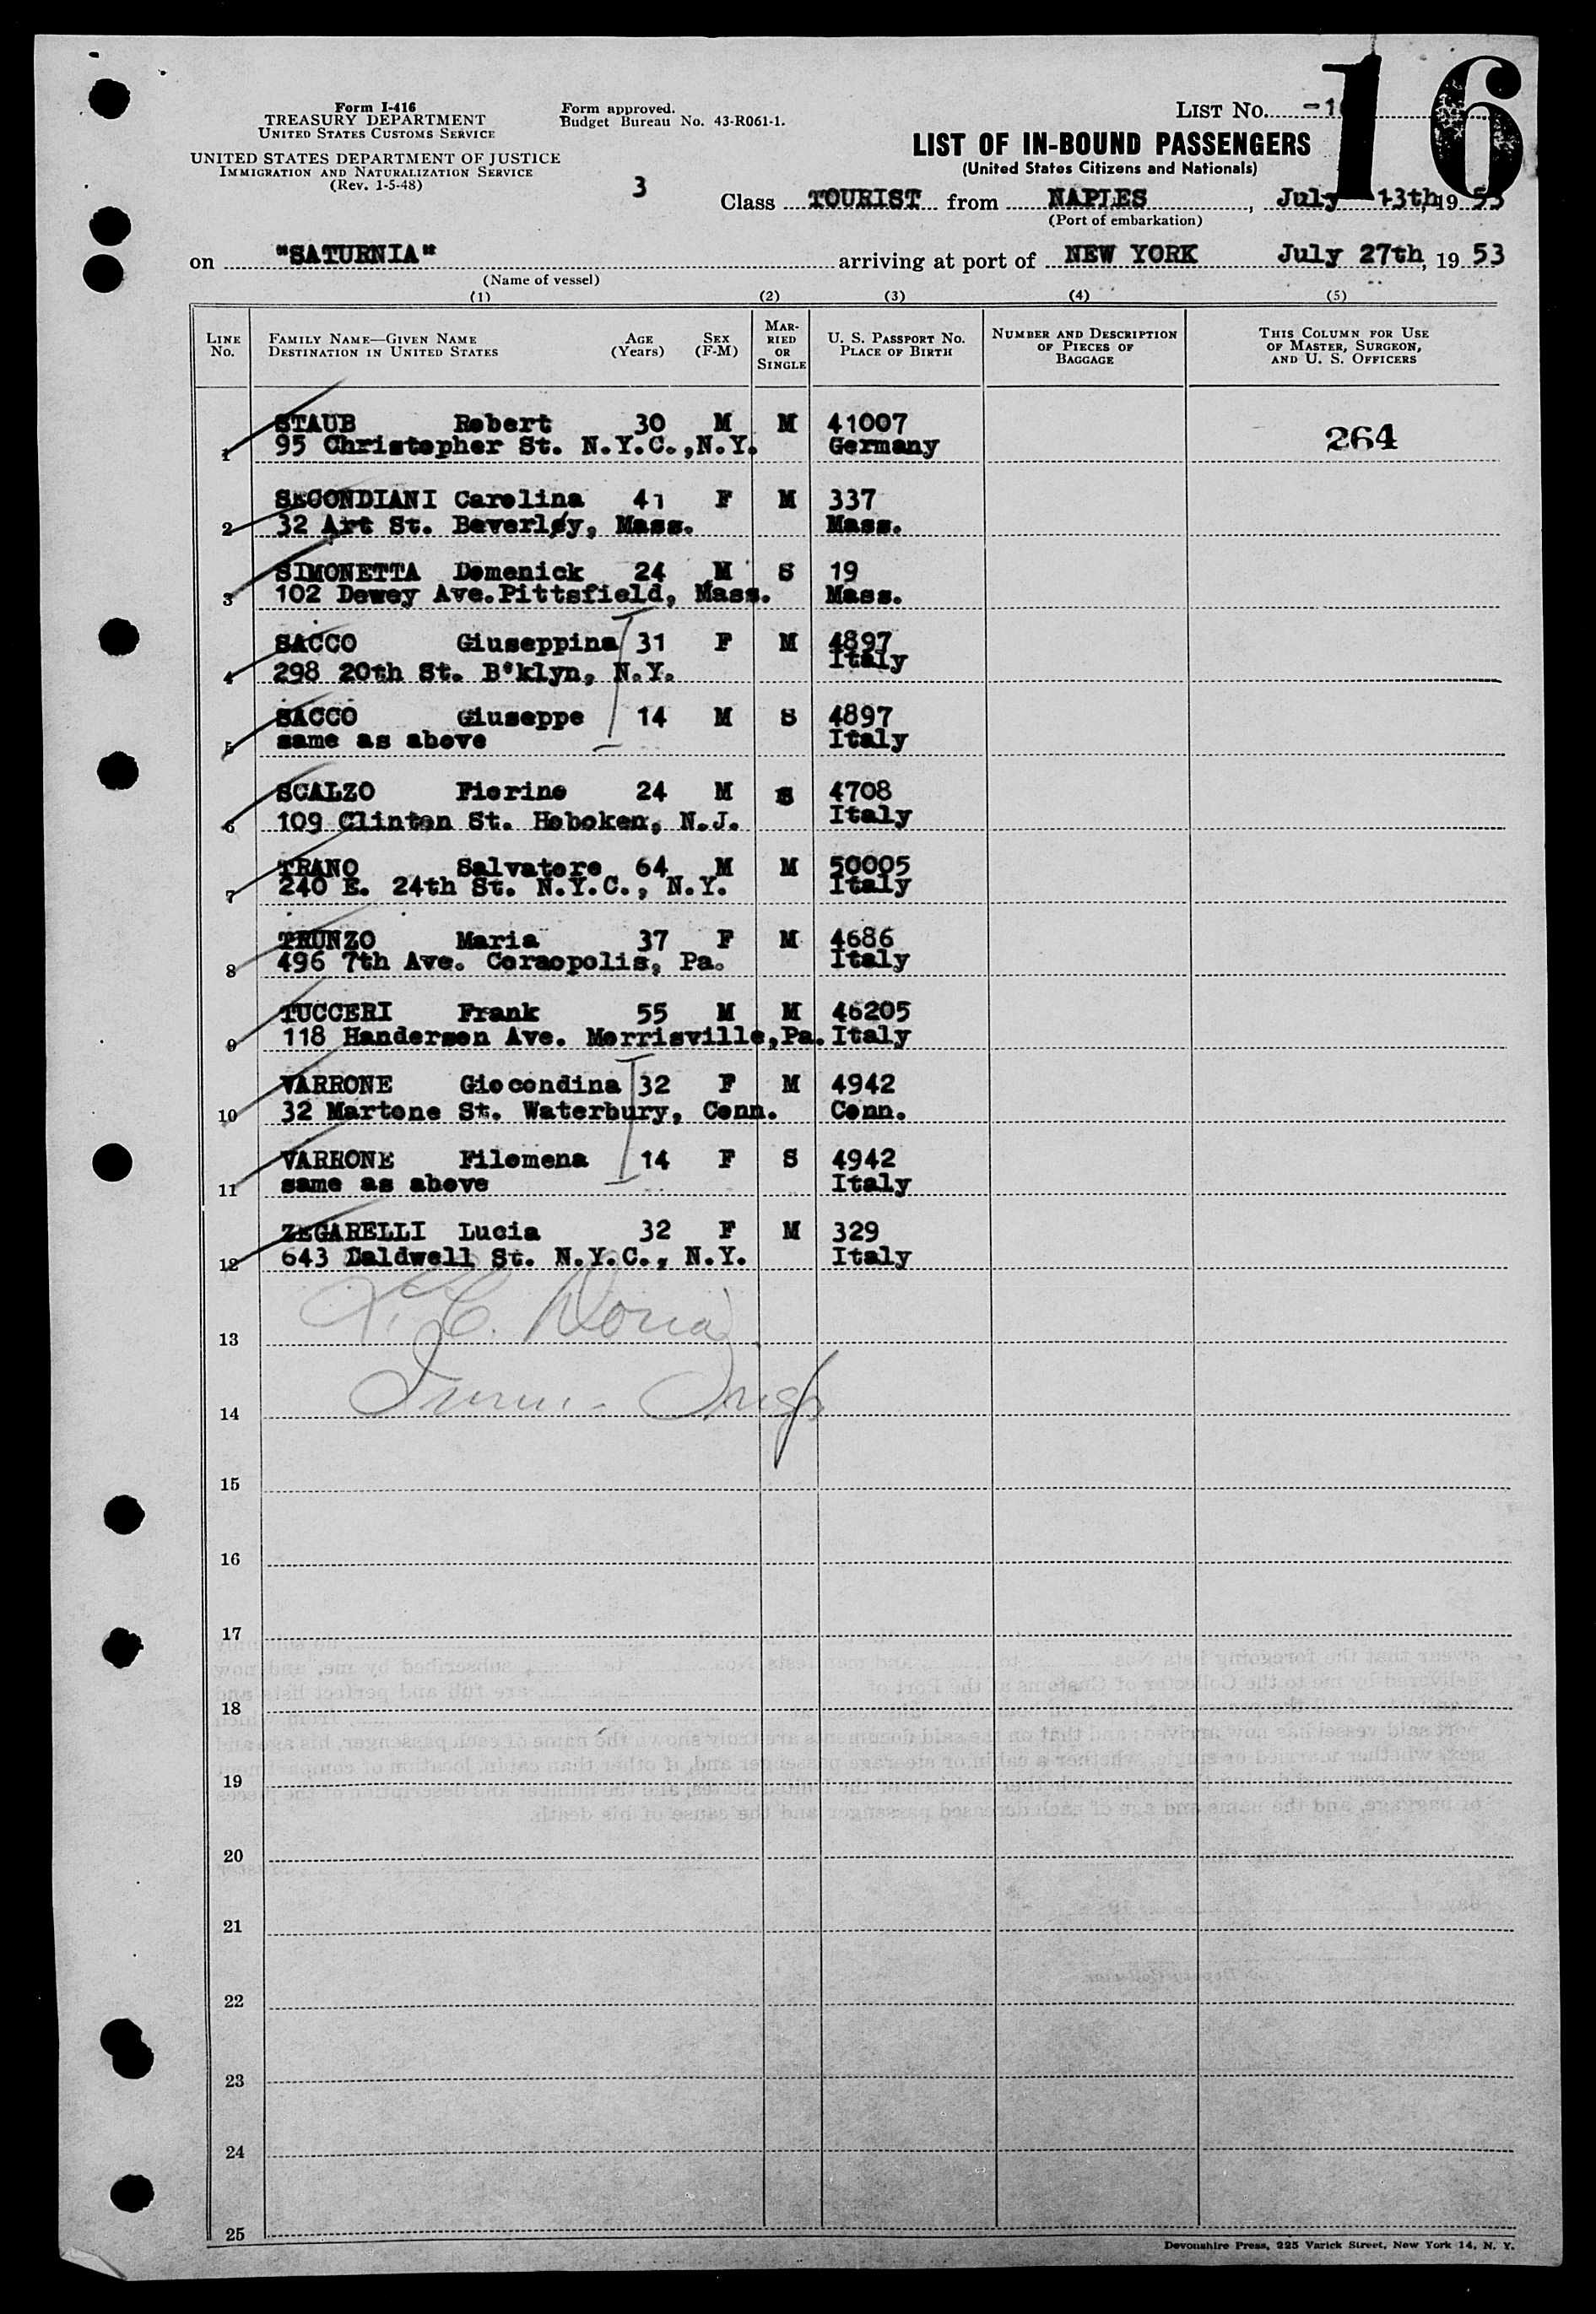 16
Form I-416
TREASURY DEPARTMENT
UNITED STATES CUSTOMS SERVICE
UNITED STATES DEPARTMENT OF JUSTICE
IMMIGRATION AND NATURALIZATION SERVICE
(Rev. 1-5-48)
Form approved.
Budget Bureau No. 43-R061-1.
LIST No.
LIST OF IN-BOUND PASSENGERS
(United States Citizens and Nationals)
3 Class TOURIST from NAPLES, July 13th, 19 53
(Port of embarkation)
on "SATURNIA" arriving at port of NEW YORK July 27th, 19 53
(Name of vessel)
(1) (2) (3) (4) (5)
LINE No. FAMILY NAME—GIVEN NAME DESTINATION IN UNITED STATES AGE (Years) SEX (F-M) MARRIED OR SINGLE U. S. PASSPORT No. PLACE OF BIRTH NUMBER AND DESCRIPTION OF PIECES OF BAGGAGE THIS COLUMN FOR USE OF MASTER, SURGEON, AND U. S. OFFICERS
STAUB Robert 30 M M 41007 264
1 95 Christopher St. N.Y.C.,N.Y. Germany
SECONDIANI Carolina 41 F M 337
2 32 Art St. Beverley, Mass. Mass.
SIMONETTA Domenick 24 M S 19
3 102 Dewey Ave.Pittsfield, Mass. Mass.
SACCO Giuseppina 31 F M 4897
4 298 20th St. B'klyn, N.Y. Italy
SACCO Giuseppe 14 M S 4897
5 same as above Italy
SCALZO Fiorino 24 M S 4708
6 109 Clinton St. Hoboken, N.J. Italy
TRANO Salvatore 64 M M 50005
7 240 E. 24th St. N.Y.C., N.Y. Italy
TRUNZO Maria 37 F M 4686
8 496 7th Ave. Coraopolis, Pa. Italy
TUCCERI Frank 55 M M 46205
9 118 Handerson Ave. Morrisville,Pa. Italy
VARRONE Giocondina 32 F M 4942
10 32 Martone St. Waterbury, Conn. Conn.
VARRONE Filomena 14 F S 4942
11 same as above Italy
ZEGARELLI Lucia 32 F M 329
12 643 Caldwell St. N.Y.C., N.Y. Italy
13
14
15
16
17
18
19
20
21
22
23
24
25
Devonshire Press, 225 Varick Street, New York 14, N. Y.